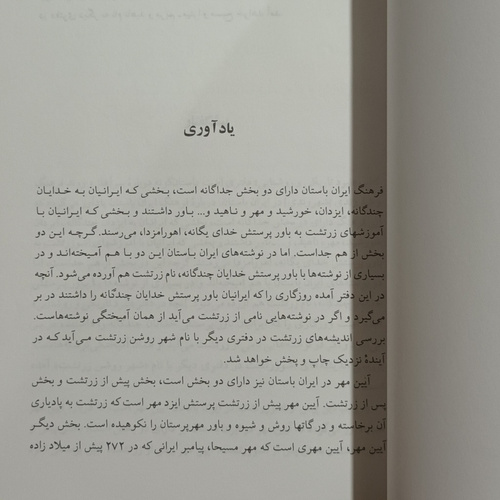 یادآوری
فرهنگ ایران باستان دارای دو بخش جداگانه است، بخشی که ایرانیان به خدایان
چندگانه، ایزدان، خورشید و مهر و ناهید و... باور داشتند و بخشی که ایرانیان با
آموزشهای زرتشت به باور پرستش خدای یگانه، اهورامزدا، می‌رسند. گرچه این دو
بخش از هم جداست. اما در نوشته‌های ایران باستان این دو با هم آمیخته‌اند و در
بسیاری از نوشته‌ها با باور پرستش خدایان چندگانه، نام زرتشت هم آورده می‌شود. آنچه
در این دفتر آمده روزگاری را که ایرانیان باور پرستش خدایان چندگانه را داشتند در بر
می‌گیرد و اگر در نوشته‌هایی نامی از زرتشت می‌آید از همان آمیختگی نوشته‌هاست.
بررسی اندیشه‌های زرتشت در دفتری دیگر با نام شهر روشن زرتشت می‌آید که در
آیندهٔ نزدیک چاپ و پخش خواهد شد.
آیین مهر در ایران باستان نیز دارای دو بخش است، بخش پیش از زرتشت و بخش
پس از زرتشت. آیین مهر پیش از زرتشت پرستش ایزد مهر است که زرتشت به پادیاری
آن برخاسته و در گاتها روش و شیوه و باور مهرپرستان را نکوهیده است. بخش دیگر
آیین مهر، آیین مهری است که مهر مسیحا، پیامبر ایرانی که در ۲۷۲ پیش از میلاد زاده